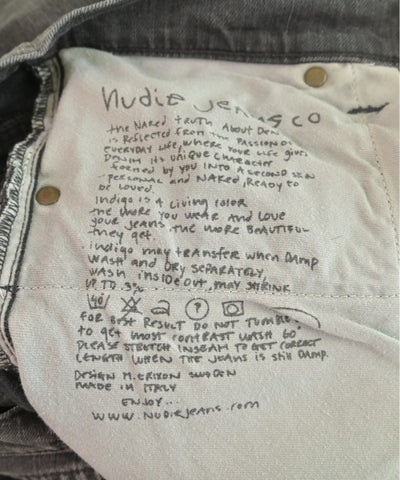 Nudie Jeans CO
the NAKED truth About DEN
is REFLECTED from the PASSION OF
EVERYDAY LIFE, WHERE YOUR LIFE gives
DENIM its UNIQUE CHARACTER
formed by you INTO A SECOND SKIN
PERSONAL AND NAKED, READY to
be LOVED.
INDIGO is A LIVING COLOR
the MORE YOU WEAR AND LOVE
YOUR JEANS THE MORE BEAUTIFUL
they get.
indigo may TRANSFER WHEN DAMP
WASH AND DRY SEPARATELY,
WASH INSIDE OUT, may SHRINK
UP TO 3%
40
FOR BEST RESULT DO NOT TUMBLE
to get most CONTRAST WASH 60°
PLEASE STRETCH INSEAM TO GET CORRECT
LENGTH WHEN THE JEANS IS STILL DAMP.
DESIGN M. ERIXON SWEDEN
MADE IN ITALY
ENJOY...
WWW.NUDIEJEANS.COM